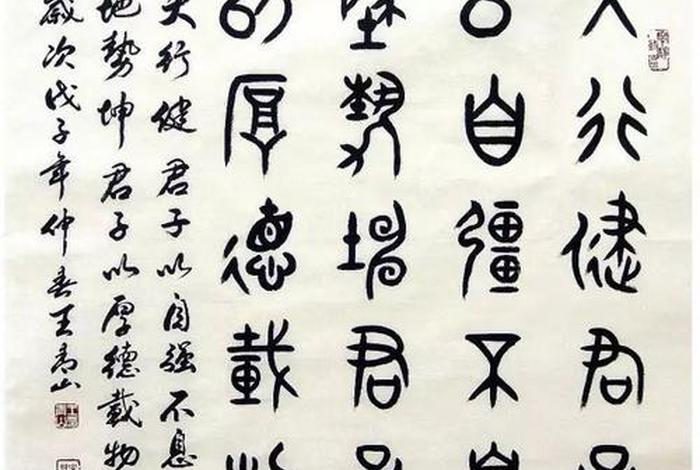 天行健君子
以自彊不息
地勢坤君子
以厚德載物
天行健君子以自强不息
地勢坤君子以厚德載物
歲次戊子年仲春王山